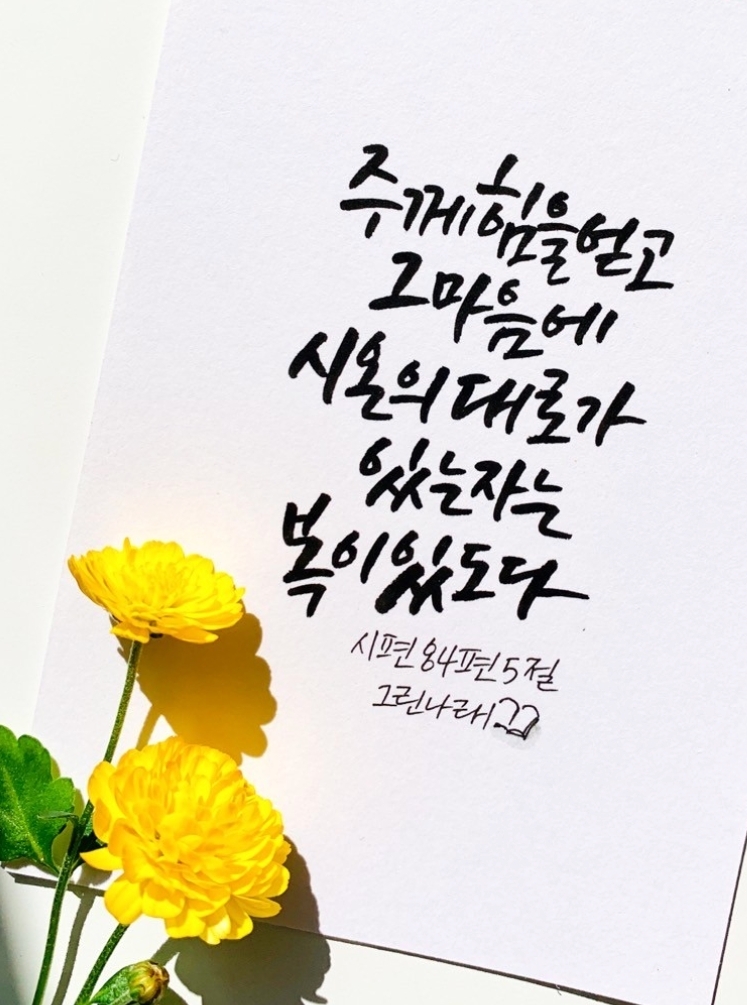 주께 힘을 얻고
그 마음에
시온의 대로가
있는 자는
복이 있도다
시편 84편 5절
그린나래